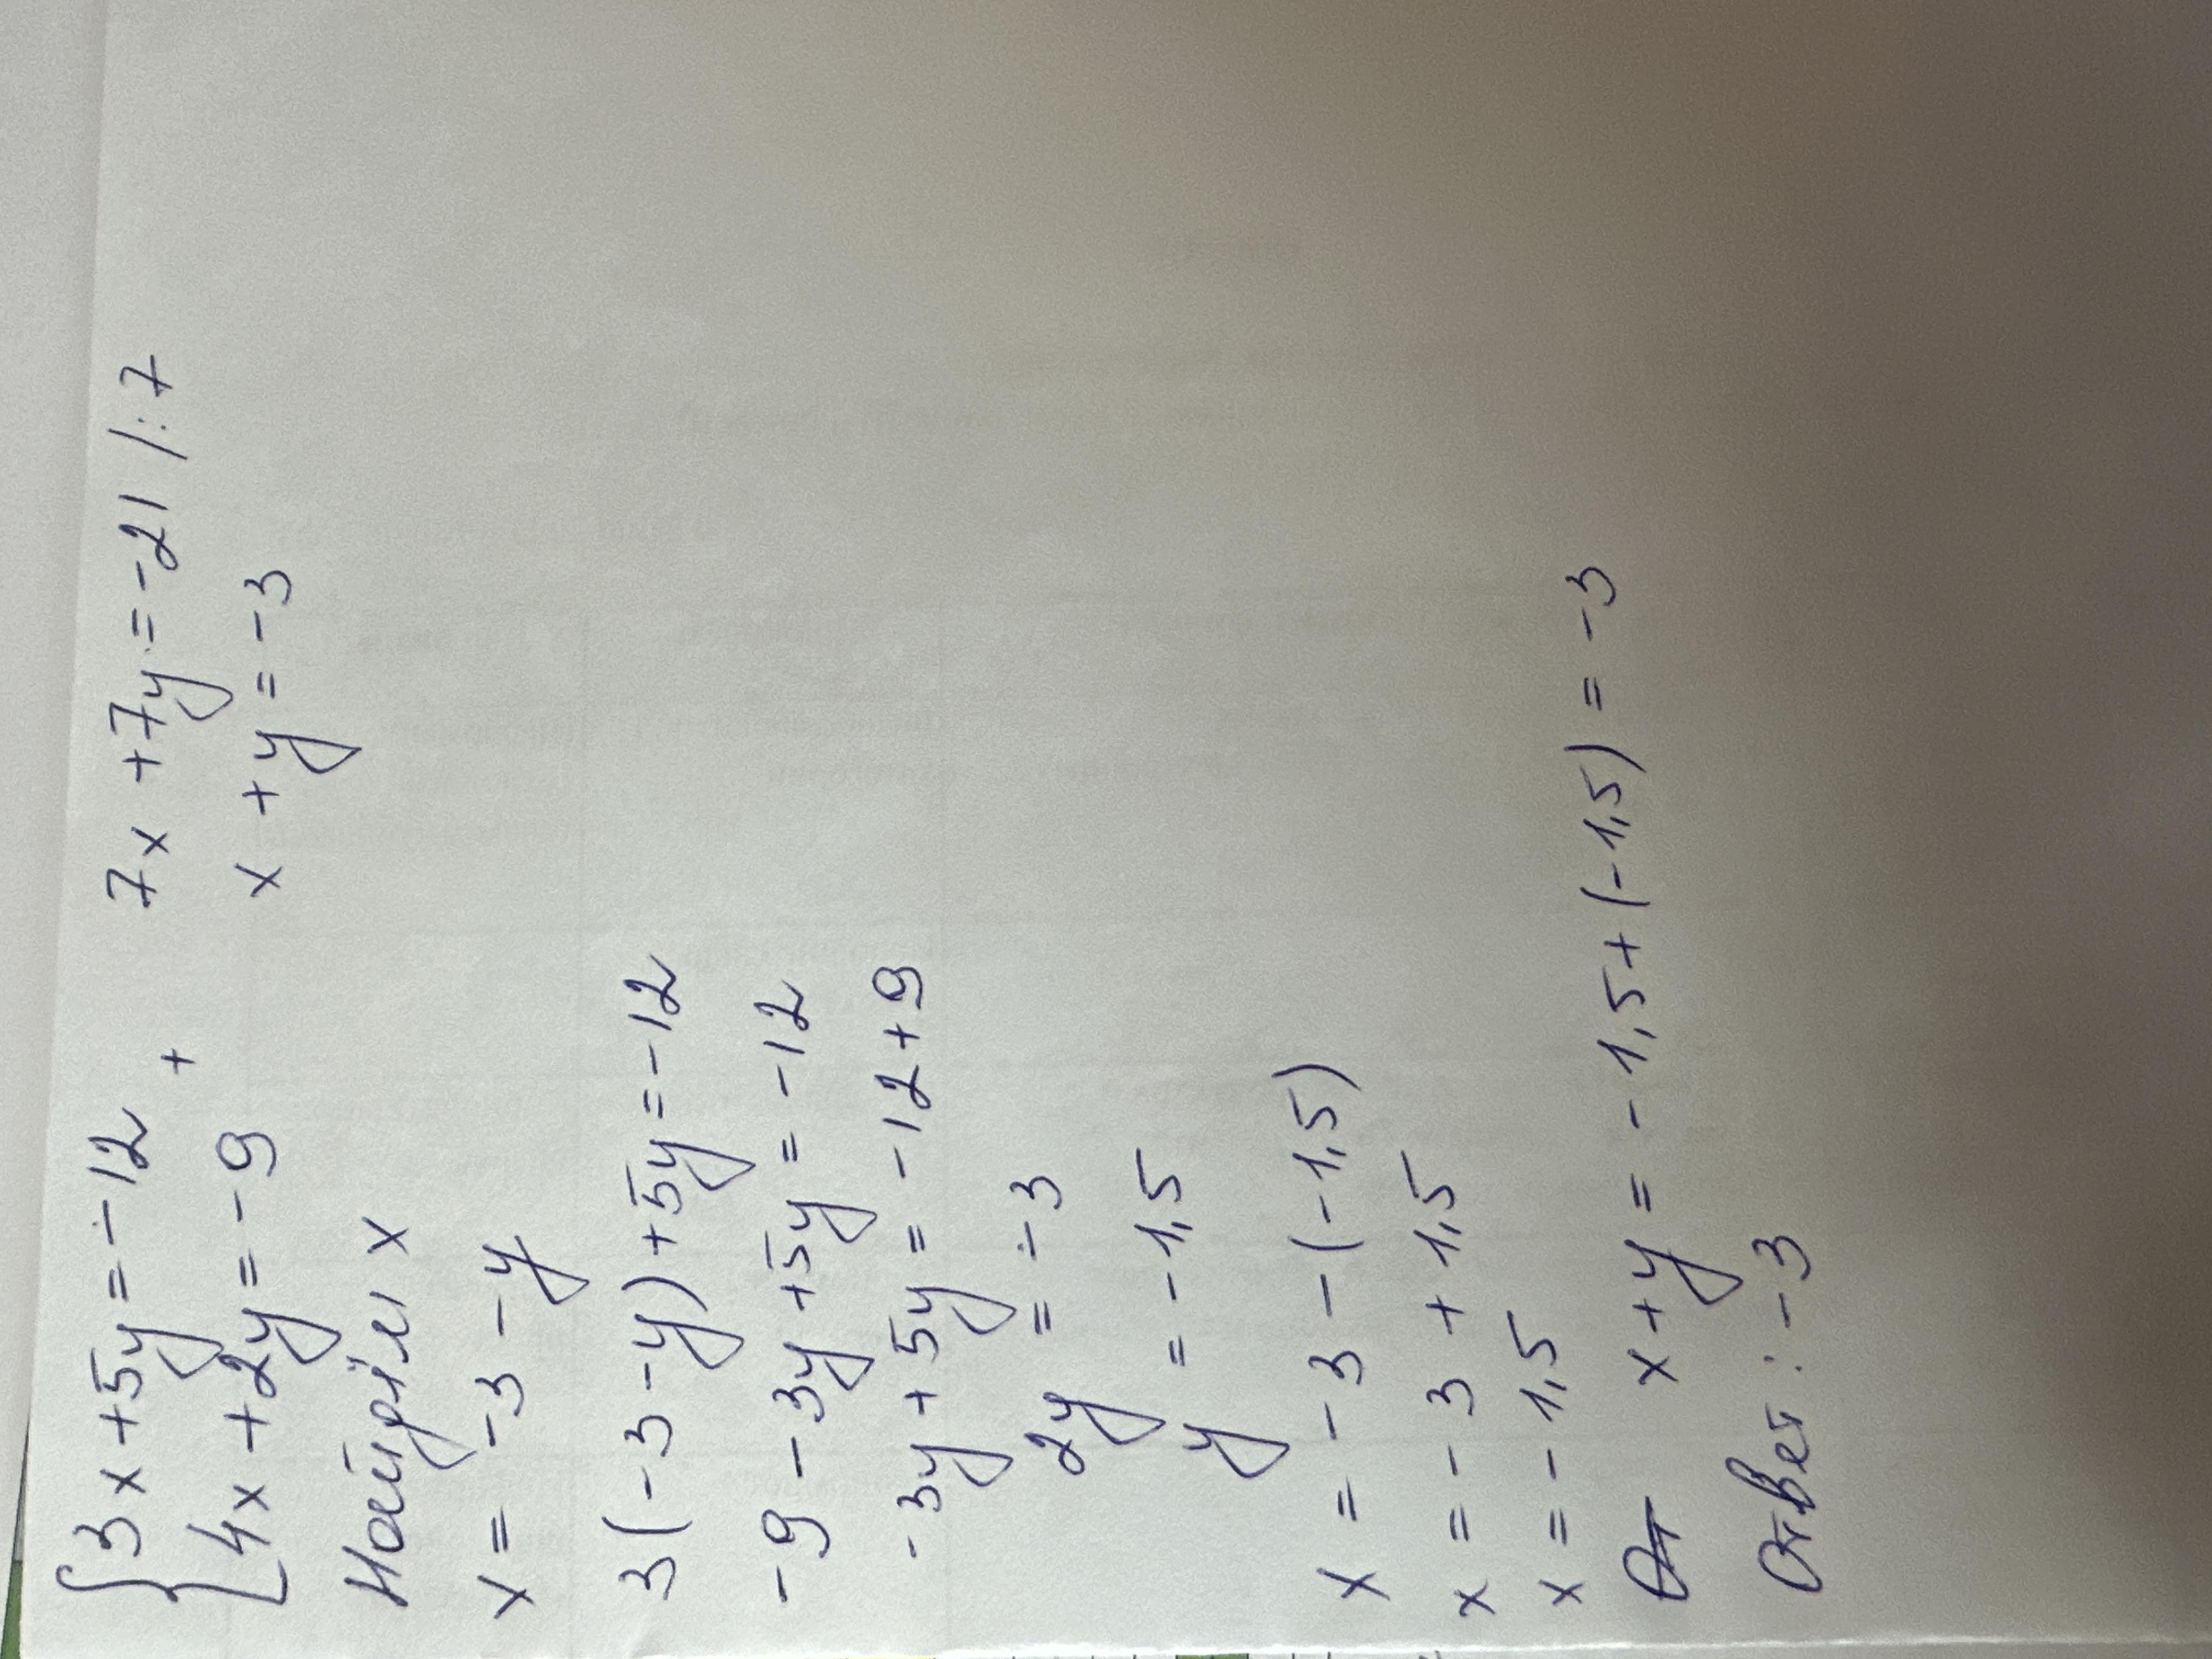 {3x+5y=-12 + 7x+7y=-21 /:7
{4x+2y=-9 x+y=-3
Найдём x
x=-3-y
3(-3-y)+5y=-12
-9-3y+5y=-12
-3y+5y=-12+9
2y=-3
y=-1,5
x=-3-(-1,5)
x=-3+1,5
x=-1,5
x+y=-1,5+(-1,5)=-3
Ответ: -3